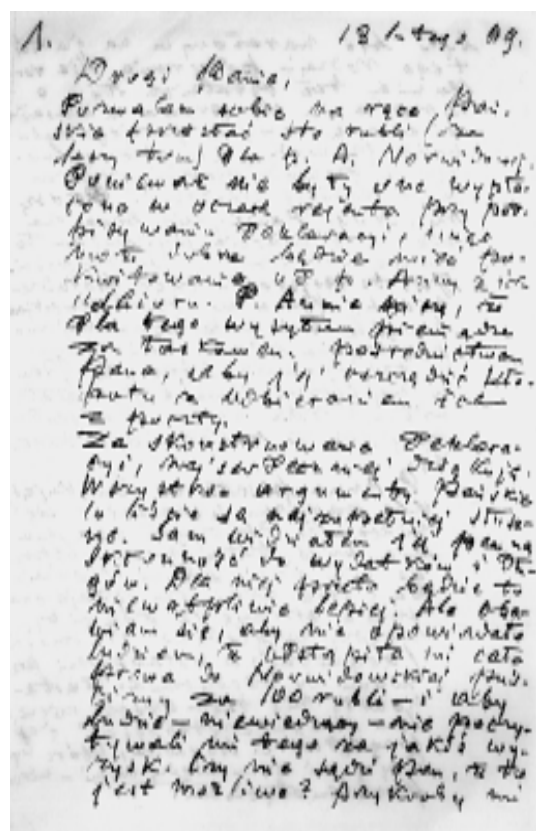 1. 18 lutego 09.
Drogi Panie,
Pozwalam sobie na ręce Pań-
skie przesłać sto rubli (na
dany tom) dla p. A. Norwidowej.
Ponieważ nie były one wypła-
cone w oczach rejenta przy pod-
pisywaniu deklaracyi, więc
może dobrze będzie mieć po-
kwitowanie od p. Anny z ich
odbioru. P. Annie piszę, że
dla tego wysyłam pieniądze
za łaskawem pośrednictwem
Pana, żeby jej oszczędzić kło-
potu z odbieraniem ich
z poczty.
Za skonstruowanie deklara-
cyi, najserdeczniej dziękuję.
Wszystkie argumenty Pańskie
w liście są najzupełniej słusz-
ne. Sam widziałem jej pewną
skłonność do wydatków i dłu-
gów. Dla niej przeto będzie to
niewątpliwie lepiej. Ale oba-
wiam się, aby nie opowiadała
ludziom, że odstąpiła mi całe
prawa do Norwidowskiej
za 100 rubli – i żeby
ludzie – niewiedzący – nie poczy-
tywali mi tego za jakiś wy-
zysk. Czy nie sądzi Pan, że to
jest możliwe? Przykroby mi